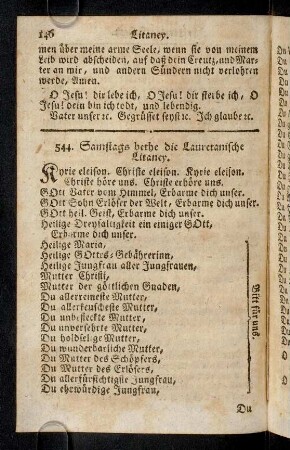 146 Litaney.
men über meine arme Seele, wenn sie von meinem
Leib wird abscheiden, auf daß dein Creutz, und Mar-
ter an mir, und andern Sündern nicht verlohren
werde, Amen.
O Jesu! dir lebe ich, O Jesu! dir sterbe ich, O
Jesu! dein bin ich todt, und lebendig.
Vater unser ꝛc. Gegrüsset seyst ꝛc. Ich glaube ꝛc.
544. Samstags bethe die Lauretanische
Litaney.
Kyrie eleison. Christe eleison. Kyrie eleison.
Christe höre uns. Christe erhöre uns.
GOtt Vater vom Himmel, Erbarme dich unser.
GOtt Sohn Erlöser der Welt, Erbarme dich unser.
GOtt heil. Geist, Erbarme dich unser.
Heilige Dreyfaltigkeit ein einiger GOtt,
Erbarme dich unser.
Heilige Maria,
Heilige GOttes-Gebährerinn,
Heilige Jungfrau aller Jungfrauen,
Mutter Christi,
Mutter der göttlichen Gnaden,
Du allerreineste Mutter,
Du allerkeuscheste Mutter,
Du unbefleckte Mutter,
Du unversehrte Mutter,
Du holdselige Mutter,
Du wunderbarliche Mutter,
Du Mutter des Schöpfers,
Du Mutter des Erlösers,
Du allerfürsichtigste Jungfrau,
Du ehrwürdige Jungfrau,
Bitt für uns.
Du